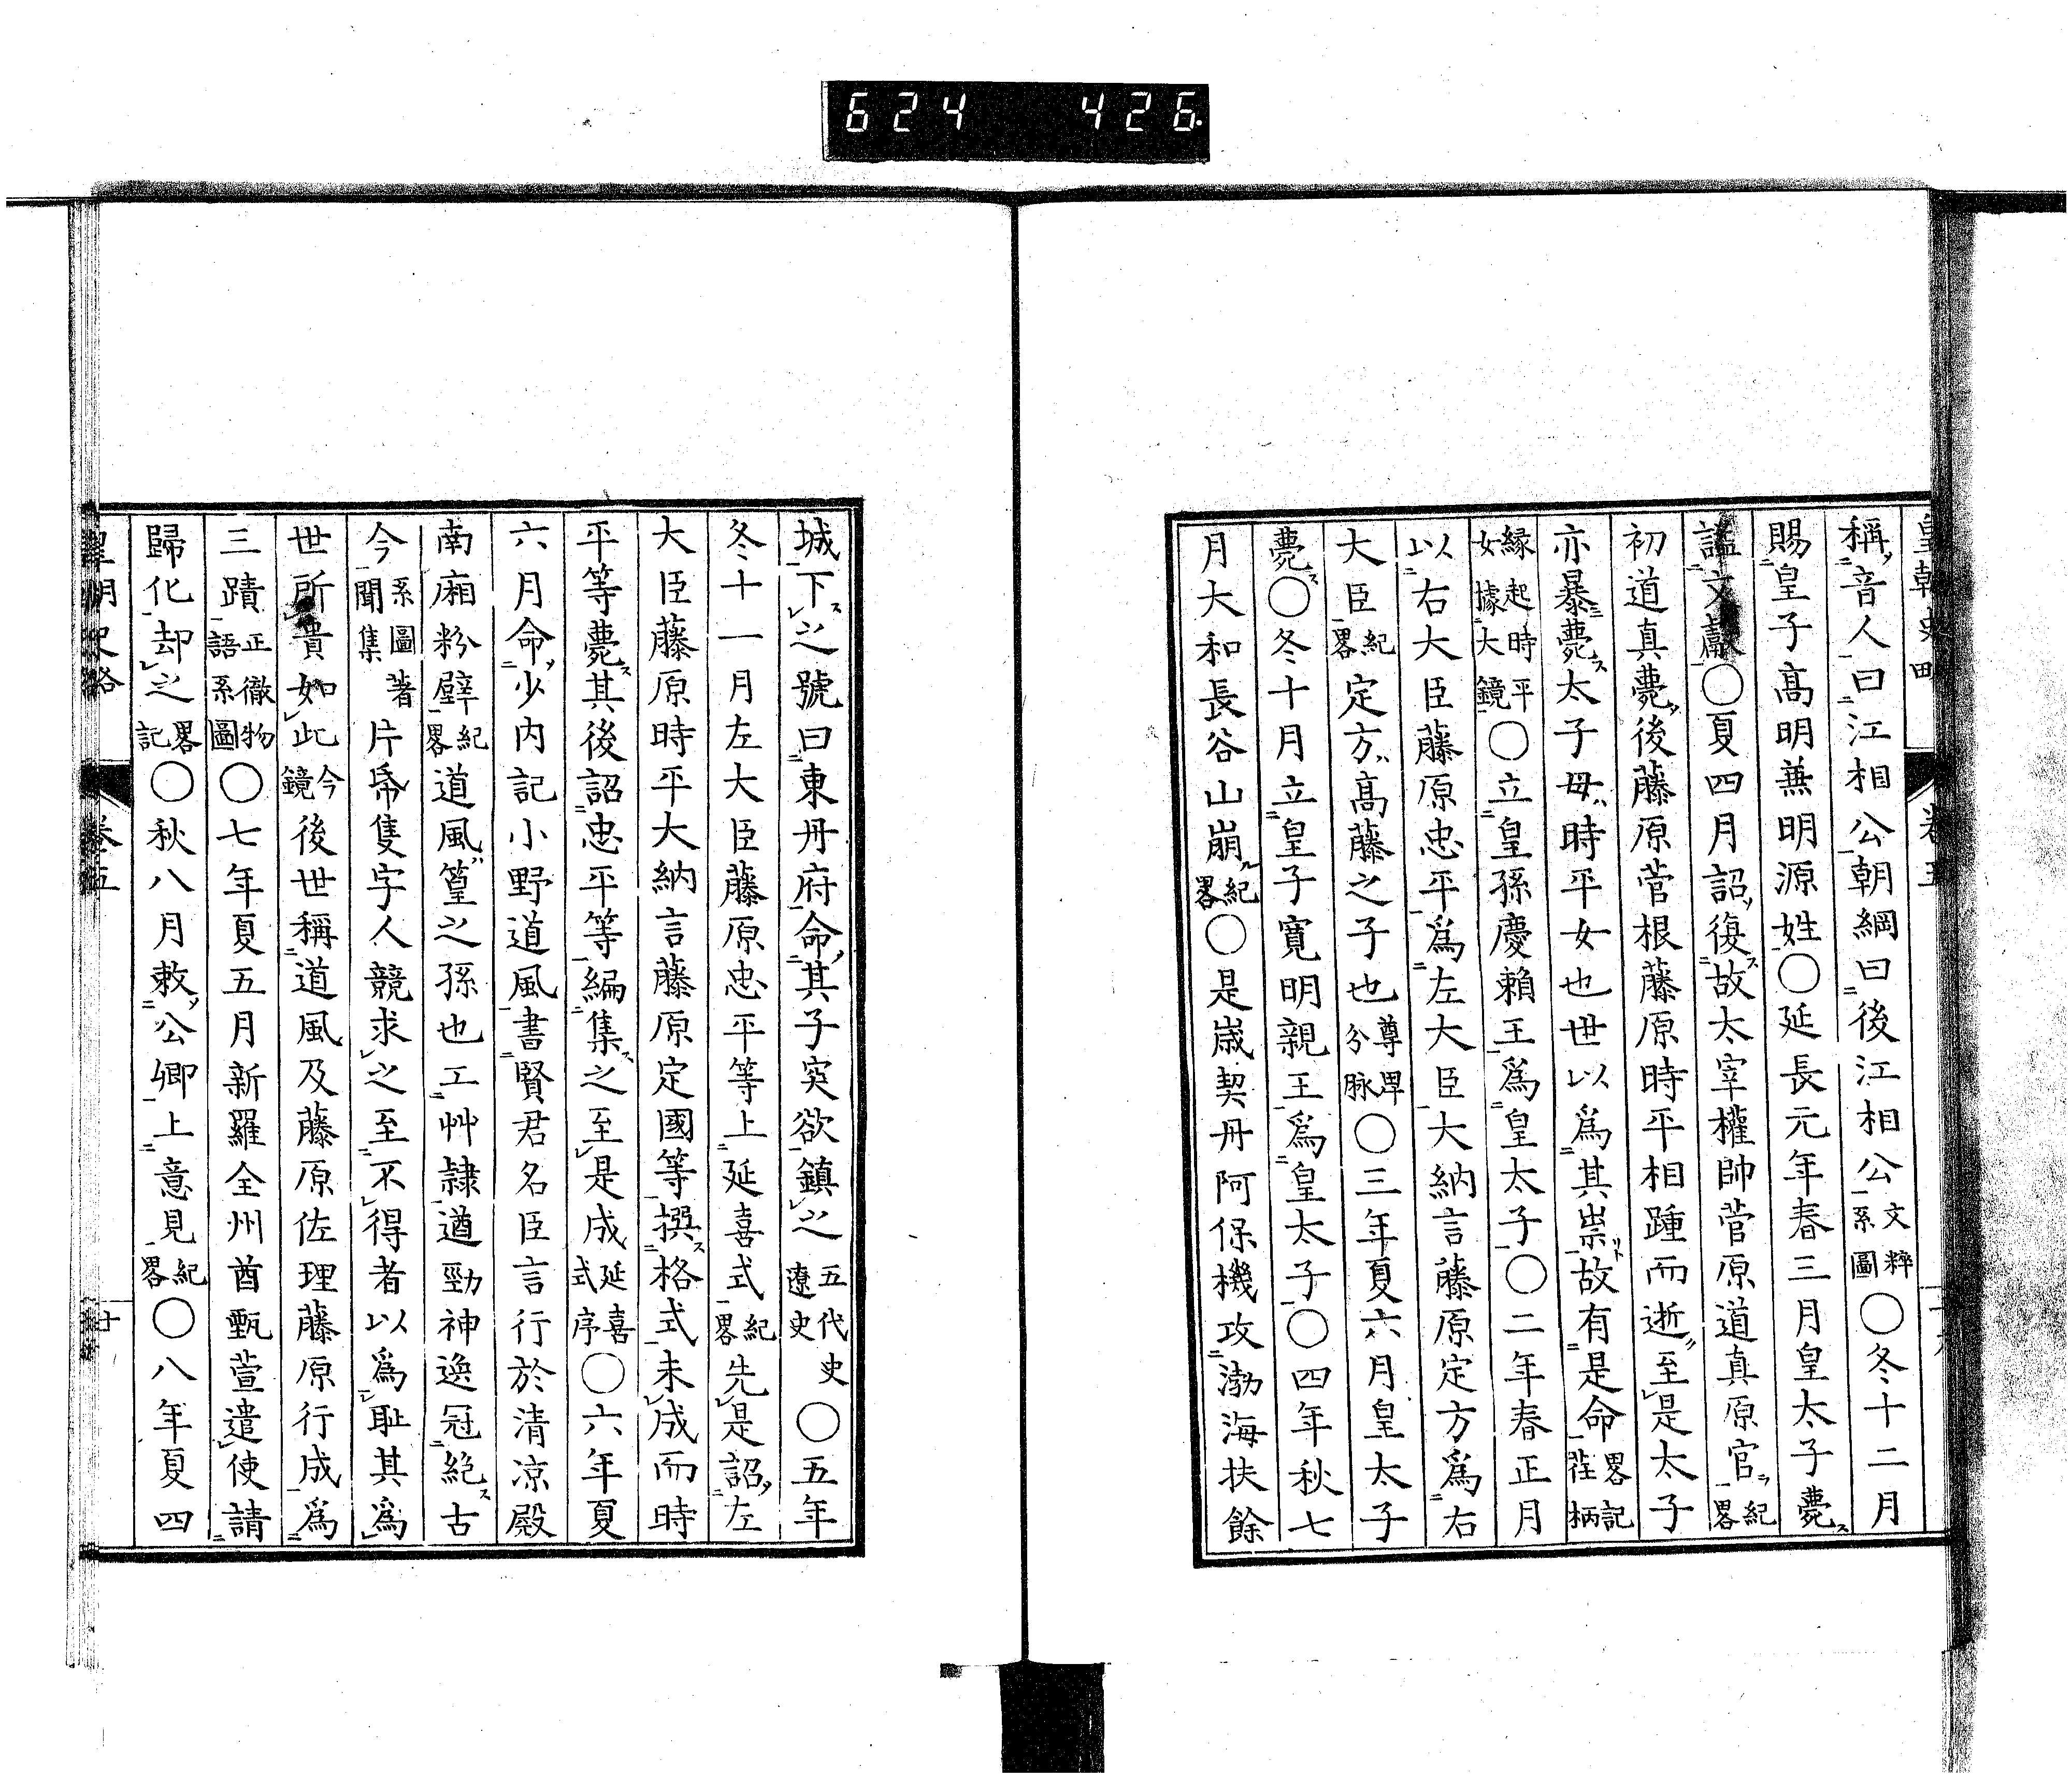 624 426
稱音人曰江相公朝綱曰後江相公文粹系圖○冬十二月
賜皇子高明兼明源姓○延長元年春三月皇太子薨
諡文獻○夏四月詔復故太宰權帥菅原道真原官紀畧
初道真薨後藤原菅根藤原時平相踵而逝至是太子
亦暴薨太子母時平女也世以爲其祟故有是命畧記荏柄
緣起時平女據大鏡○立皇孫慶賴王爲皇太子○二年春正月
以右大臣藤原忠平爲左大臣大納言藤原定方爲右
大臣紀畧定方高藤之子也尊卑分脉○三年夏六月皇太子
薨○冬十月立皇子寬明親王爲皇太子○四年秋七
月大和長谷山崩紀畧○是歲契丹阿保機攻渤海扶餘
城下之號曰東丹府命其子突欲鎮之五代史遼史○五年
冬十一月左大臣藤原忠平等上延喜式紀畧先是詔左
大臣藤原時平大納言藤原定國等撰格式未成而時
平等薨其後詔忠平等編集之至是成延喜式序○六年夏
六月命少内記小野道風書賢君名臣言行於清凉殿
南廂粉壁紀畧道風篁之孫也工艸隷遒勁神逸冠絶古
今系圖著聞集片帋隻字人競求之至不得者以爲恥其爲
世所貴如此今鏡後世稱道風及藤原佐理藤原行成爲
三蹟正徹物語系圖○七年夏五月新羅全州酋甄萱遣使請
歸化却之畧記○秋八月敕公卿上意見紀畧○八年夏四
皇朝史略 卷五 廿